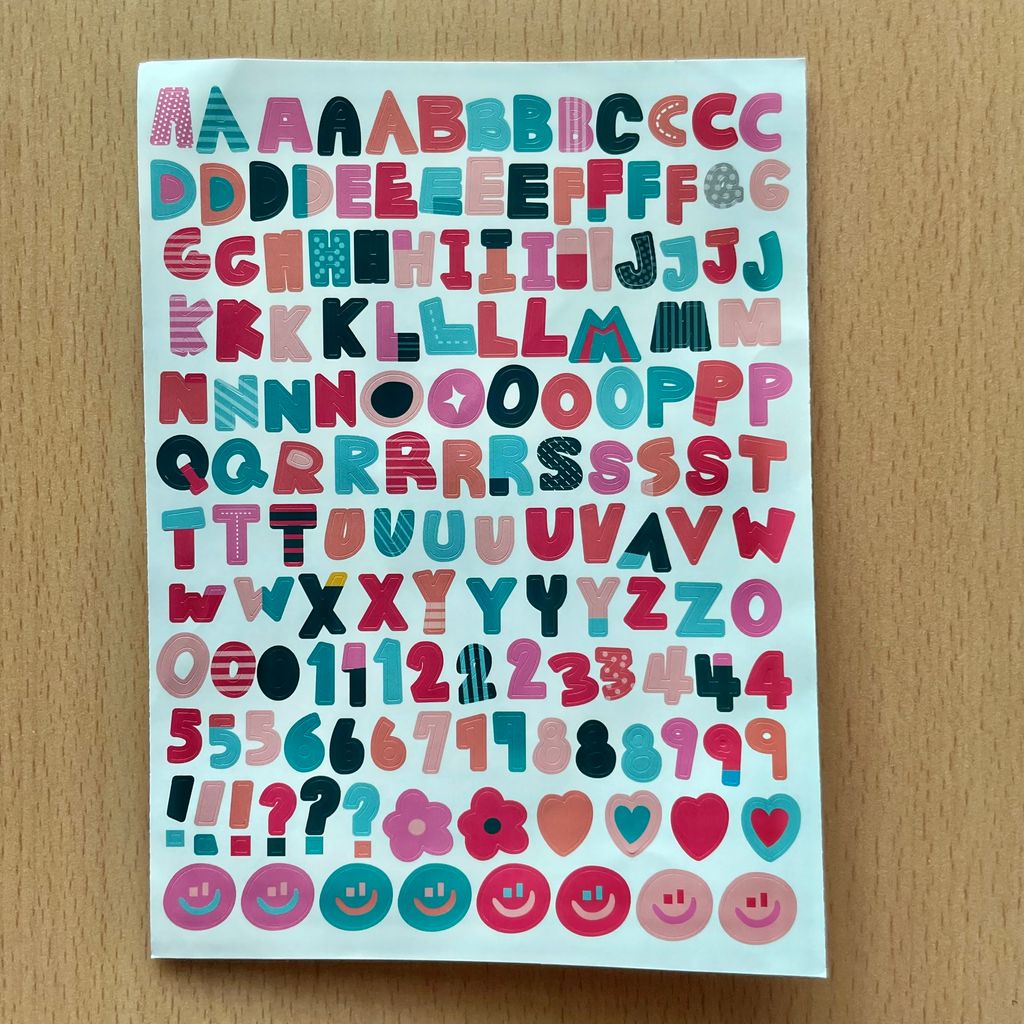 A A A A A B B B B C C C C
D D D D E E E E E F F F F G G
G G H H H H I I I I J J J J
K K K K L L L L M M M
N N N N O O O O O P P P
Q Q R R R R R S S S S T
T T T U U U U U V V V W
W W X X Y Y Y Y Z Z O
0 0 0 1 1 1 2 2 2 3 3 4 4 4
5 5 5 6 6 6 7 7 7 8 8 8 9 9 9
! ! ! ? ? ?